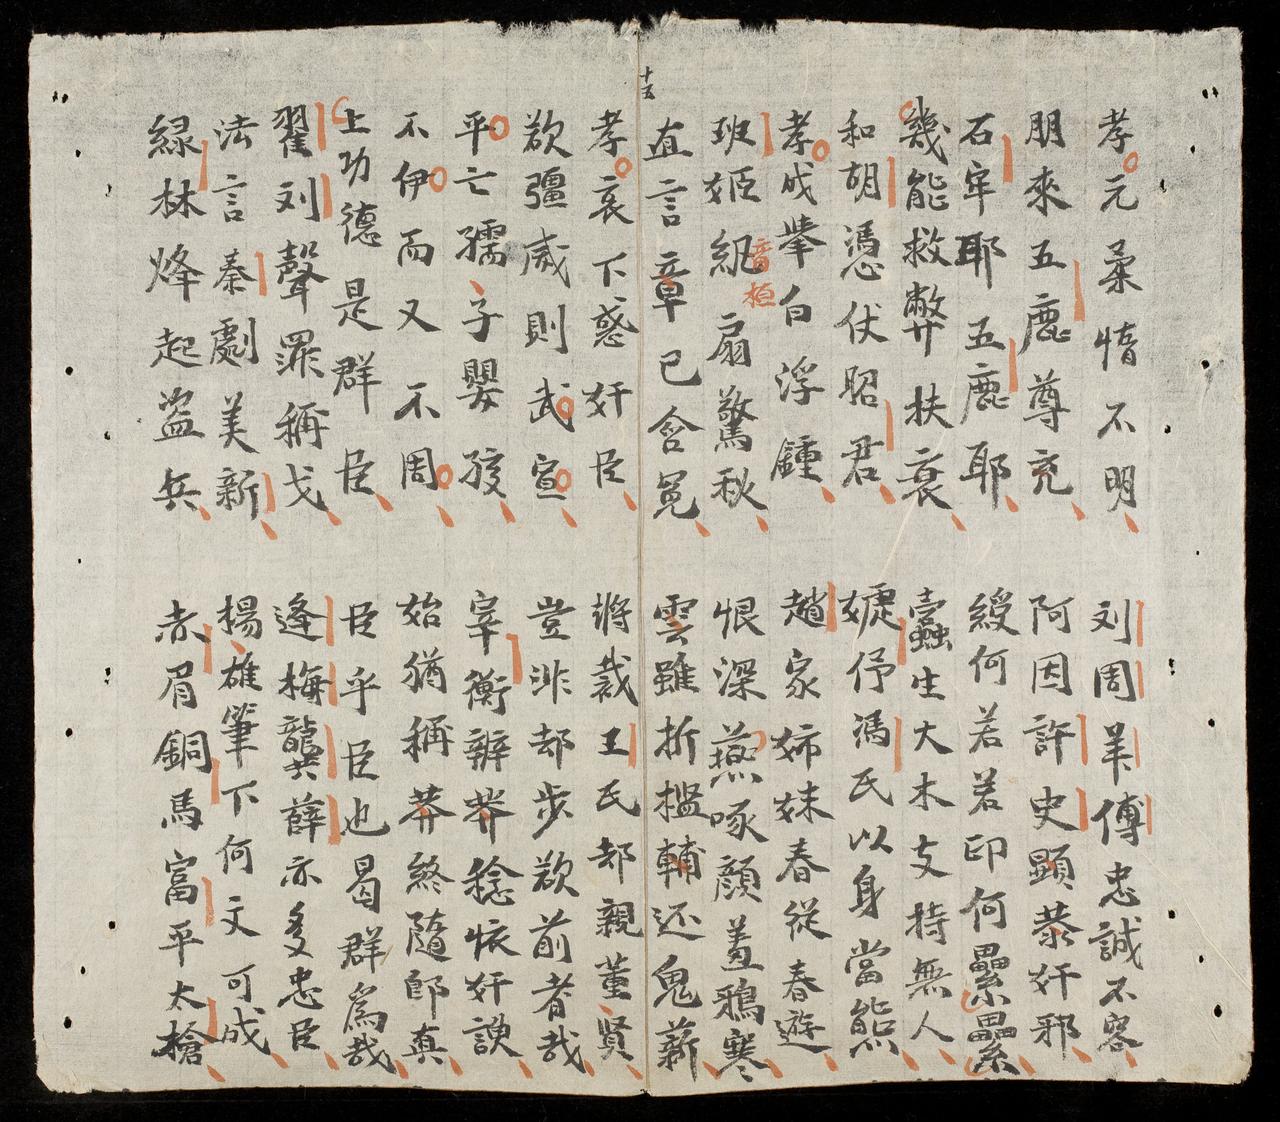 十五
孝元柔惰不明 刘周羊傅忠誠不容
朋來五鹿尊充 阿因許史顯恭奸邪
石牢耶五鹿耶 綬何若若印何纍纍
幾能救弊扶衰 蠹生大木支持無人
和胡憑伏昭君 婕伃馮氏以身當熊
孝成舉白浮鍾 趙家姊妹春從春遊
班姬紈扇驚秋 恨深燕啄顔羞鴉寒
音植
直言章已含冤 雲雖折檻輔还鬼薪
孝哀下惑奸臣 將裁王氏却親董賢
欲彊威則武宣 豈非却步欲前者哉
平亡孺子嬰孩 宰衡辦莽稔恢奸諛
不伊而又不周 始猶稱莽終隨即真
上功德是群臣 臣乎臣也曷群爲哉
翟刘聲罪稱戈 逄梅龔薛亦多忠臣
法言秦劇美新 楊雄筆下何文可成
緑林烽起盜兵 赤眉銅馬富平太槍